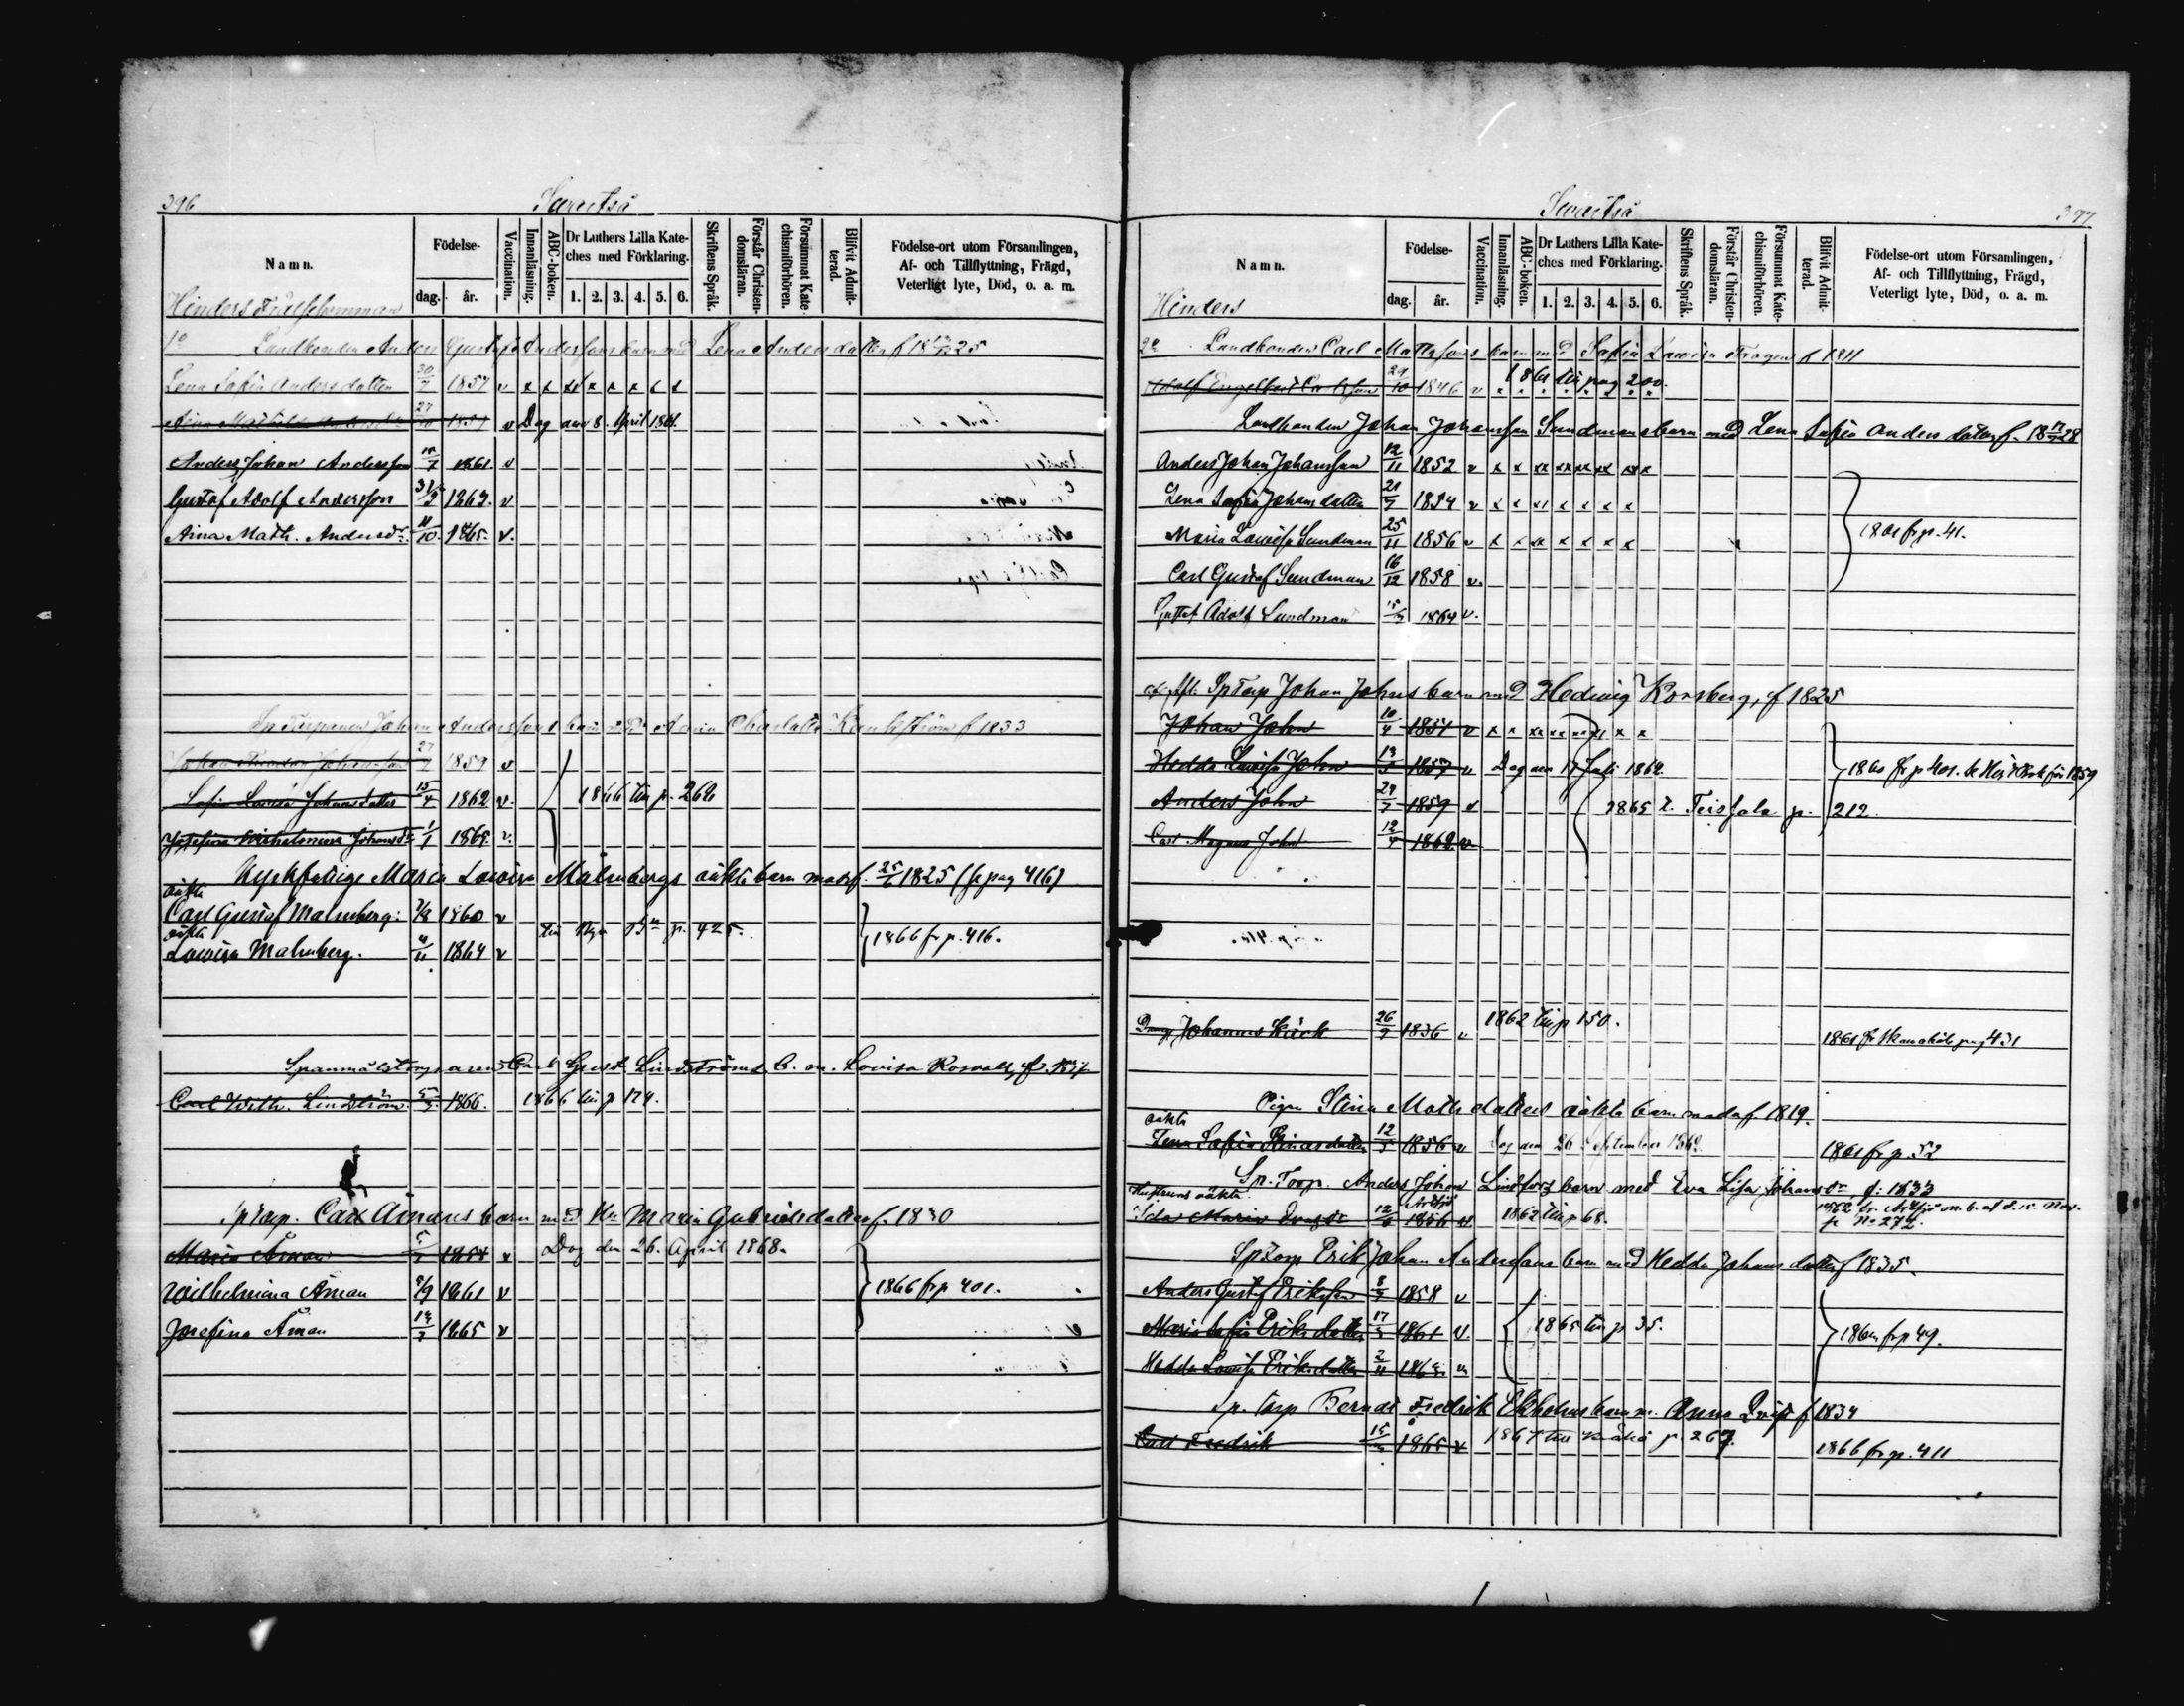 396
Svartså
Namn.
Hinders
Födelse-
dag. år.
Vaccination.
Innanläsning.
ABC-boken.
Dr Luthers Lilla Kate-
ches med Förklaring.
1. 2. 3. 4. 5. 6.
Skriftens Språk.
Förstår Christen-
domsläran.
Försummat Kate-
chismiförhören.
Blifvit Admit-
terad.
Födelse-ort utom Församlingen,
Af- och Tillflyttning, Frägd,
Veterligt lyte, Död, o. a. m.
1o Landbonden Anders Gustaf Anderssons barn med Lena Andersdatter f 18 25
Lena Sofia Andersdatter 30/7 1857 v x x x x x x x x
27/10 1859 v Dog den 8. April 1861.
Anders Johan Andersson /7 1861 v
Gustaf Adolf Andersson 1863. v
Aina Math. Andersdr 11/10. 1865. v.
Sp Torparen Johan Anderssons barn med Anna f 1833
27/ 1859 v
Sofia Lovisa Johansdatter 15/4 1862 v. 1866 till p. 262
Josefina Wilhelmina Johansdr 1/1 1865. v.
Nyckfattige Maria Lovisa Malmbergs oäkta barn modr f. 25/6 1825 (se pag 416)
oäkta
Carl Gustaf Malmberg. 7/8 1860 v
oäkta till p. 425. 1866 fr p. 416.
Lovisa Malmberg. 4/11 1864 v
Spanmålstorparen Carl Gust Lindströms b. m. Lovisa Rosvall, f.
Carl Wilh. Lindström. 5/3. 1866. 1866 till p 174.
Sp Torp. Carl Åmans barn med Hu Maria Gabrielsdatter f. 1830
Maria Åman 1854 v Dog den 26. April 1868.
Wilhelmina Åman /9 1861 v 1866 fr p 401.
Josefina Åman 14/7 1865 v
Svartså
397
Namn.
Hinders
Födelse-
dag. år.
Vaccination.
Innanläsning.
ABC-boken.
Dr Luthers Lilla Kate-
ches med Förklaring.
1. 2. 3. 4. 5. 6.
Skriftens Språk.
Förstår Christen-
domsläran.
Försummat Kate-
chismiförhören.
Blifvit Admit-
terad.
Födelse-ort utom Församlingen,
Af- och Tillflyttning, Frägd,
Veterligt lyte, Död, o. a. m.
2o Landbonden Carl Mattssons barn med Sofia Lovisa f 1811
Adolf Engelbert Carlsson 29/10 1846 v 1861 till pag 200.
Landbonden Johan Johansson Sundmans barn med Lena Sofia Andersdatter f. 18 28
Anders Johan Johansson 12/11 1852 v x x xx xx xx xx x
Lena Sofia Johansdatter 21/7 1854 v x x x x x x x
Maria Lovisa Sundman 25/11 1856 v x x xx x x x x 1861 fr p. 41.
Carl Gustaf Sundman 16/12 1858 v.
Gustaf Adolf Sundman 1864 v.
Afl. Sp Torp Johan Johns barn med Hedvig Korsberg, f 1825
Johan John 10/4 1851 v x x xx xx x x x x
Hedda Lovisa John 13/3 1857 v Dog den 17 Juli 1862. 1860 fr p 401.
Anders John 29/7 1859 v 1865 t. Teisjola p. 212.
Carl Magnus John 12/4 1862. v.
Dreng Johannes Käck 26/9 1836 v 1862 till p 150. 1861 fr pag 431
Pigan Stina Matsdatters oäkta barn modr f 1819.
oäkta
Lena Sofia Stinasdatter 12/5 1856 v Dog den 26 September 1862. 1861 fr p. 52
Sp. Torp. Anders Johan Lindfors barn med Eva Lisa Johansdr, f. 1833
Hustruns oäkta
Ida Maria 12/6 1856 v 1862 till p 68. 1862 No 272.
Sp Torp Erik Johan Anderssons barn med Hedda Johansdatter f 1835.
Anders Gustaf Eriksson 8/7 1858 v
Maria Sofia Eriksdatter 17/3 1861 v. 1865 till p 35. fr p 49.
Hedda Lovisa Eriksdatter 2/11 1863 v
Sp. Torp Berndt Fredrik Ekholms barn m. Anna f 1834
Carl Fredrik 1865 v 1867 till p. 267. 1866 fr p. 411